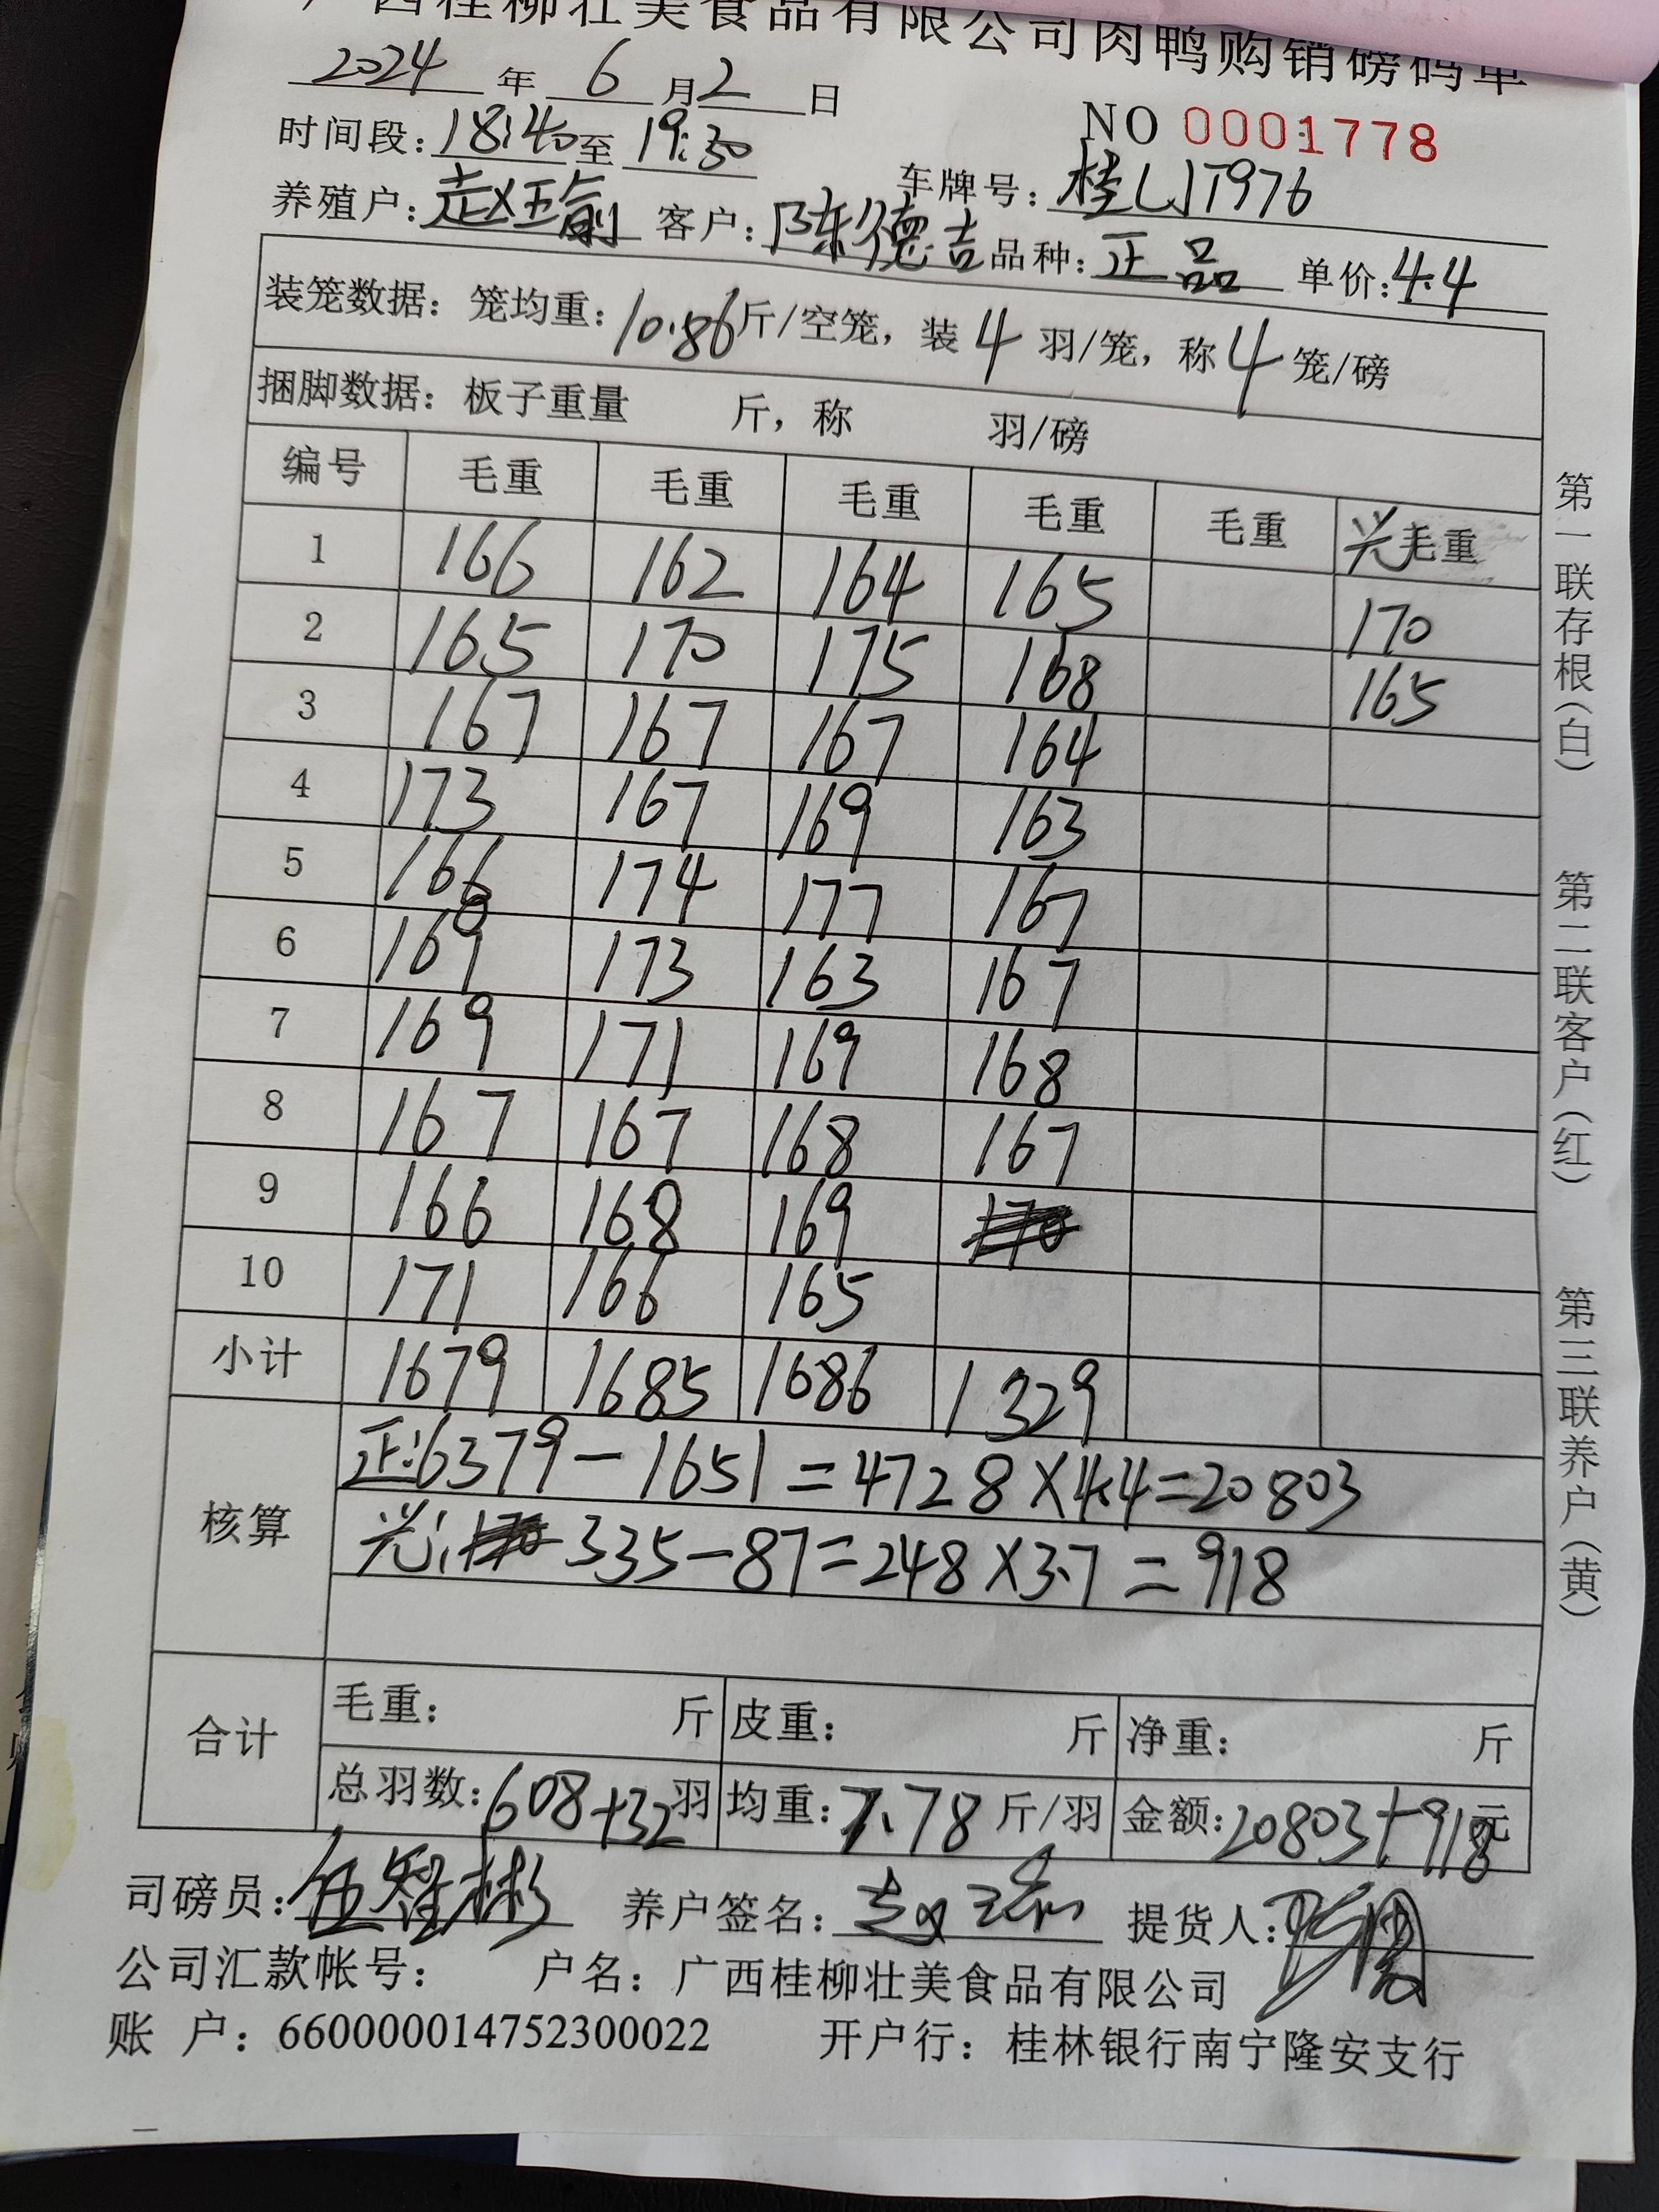 广西桂柳壮美食品有限公司肉鸭购销磅码单
2024 年 6 月 2 日
NO 0001778
时间段: 18:40 至 19:30 车牌号: 桂LJT976
养殖户: 赵王俞 客户: 陈德吉 品种: 正品 单价: 4.4
装笼数据: 笼均重: 10.86 斤/空笼, 装 4 羽/笼, 称 4 笼/磅
捆脚数据: 板子重量 斤, 称 羽/磅
编号 毛重 毛重 毛重 毛重 毛重 光毛重
1 166 162 164 165 170
2 165 170 175 168 165
3 167 167 167 164
4 173 167 169 163
5 166 174 177 167
6 169 173 163 167
7 169 171 169 168
8 167 167 168 167
9 166 168 169 170
10 171 166 165
小计 1679 1685 1686 1329
核算
正: 6379-1651=4728×4.4=20803
光: 170 335-87=248×3.7=918
合计
毛重: 斤 皮重: 斤 净重: 斤
总羽数: 608+32 羽 均重: 7.78 斤/羽 金额: 20803+918 元
司磅员: 伍智彬 养户签名: 提货人:
公司汇款帐号: 户名: 广西桂柳壮美食品有限公司
账 户: 660000014752300022 开户行: 桂林银行南宁隆安支行
第一联存根(白) 第二联客户(红) 第三联养户(黄)